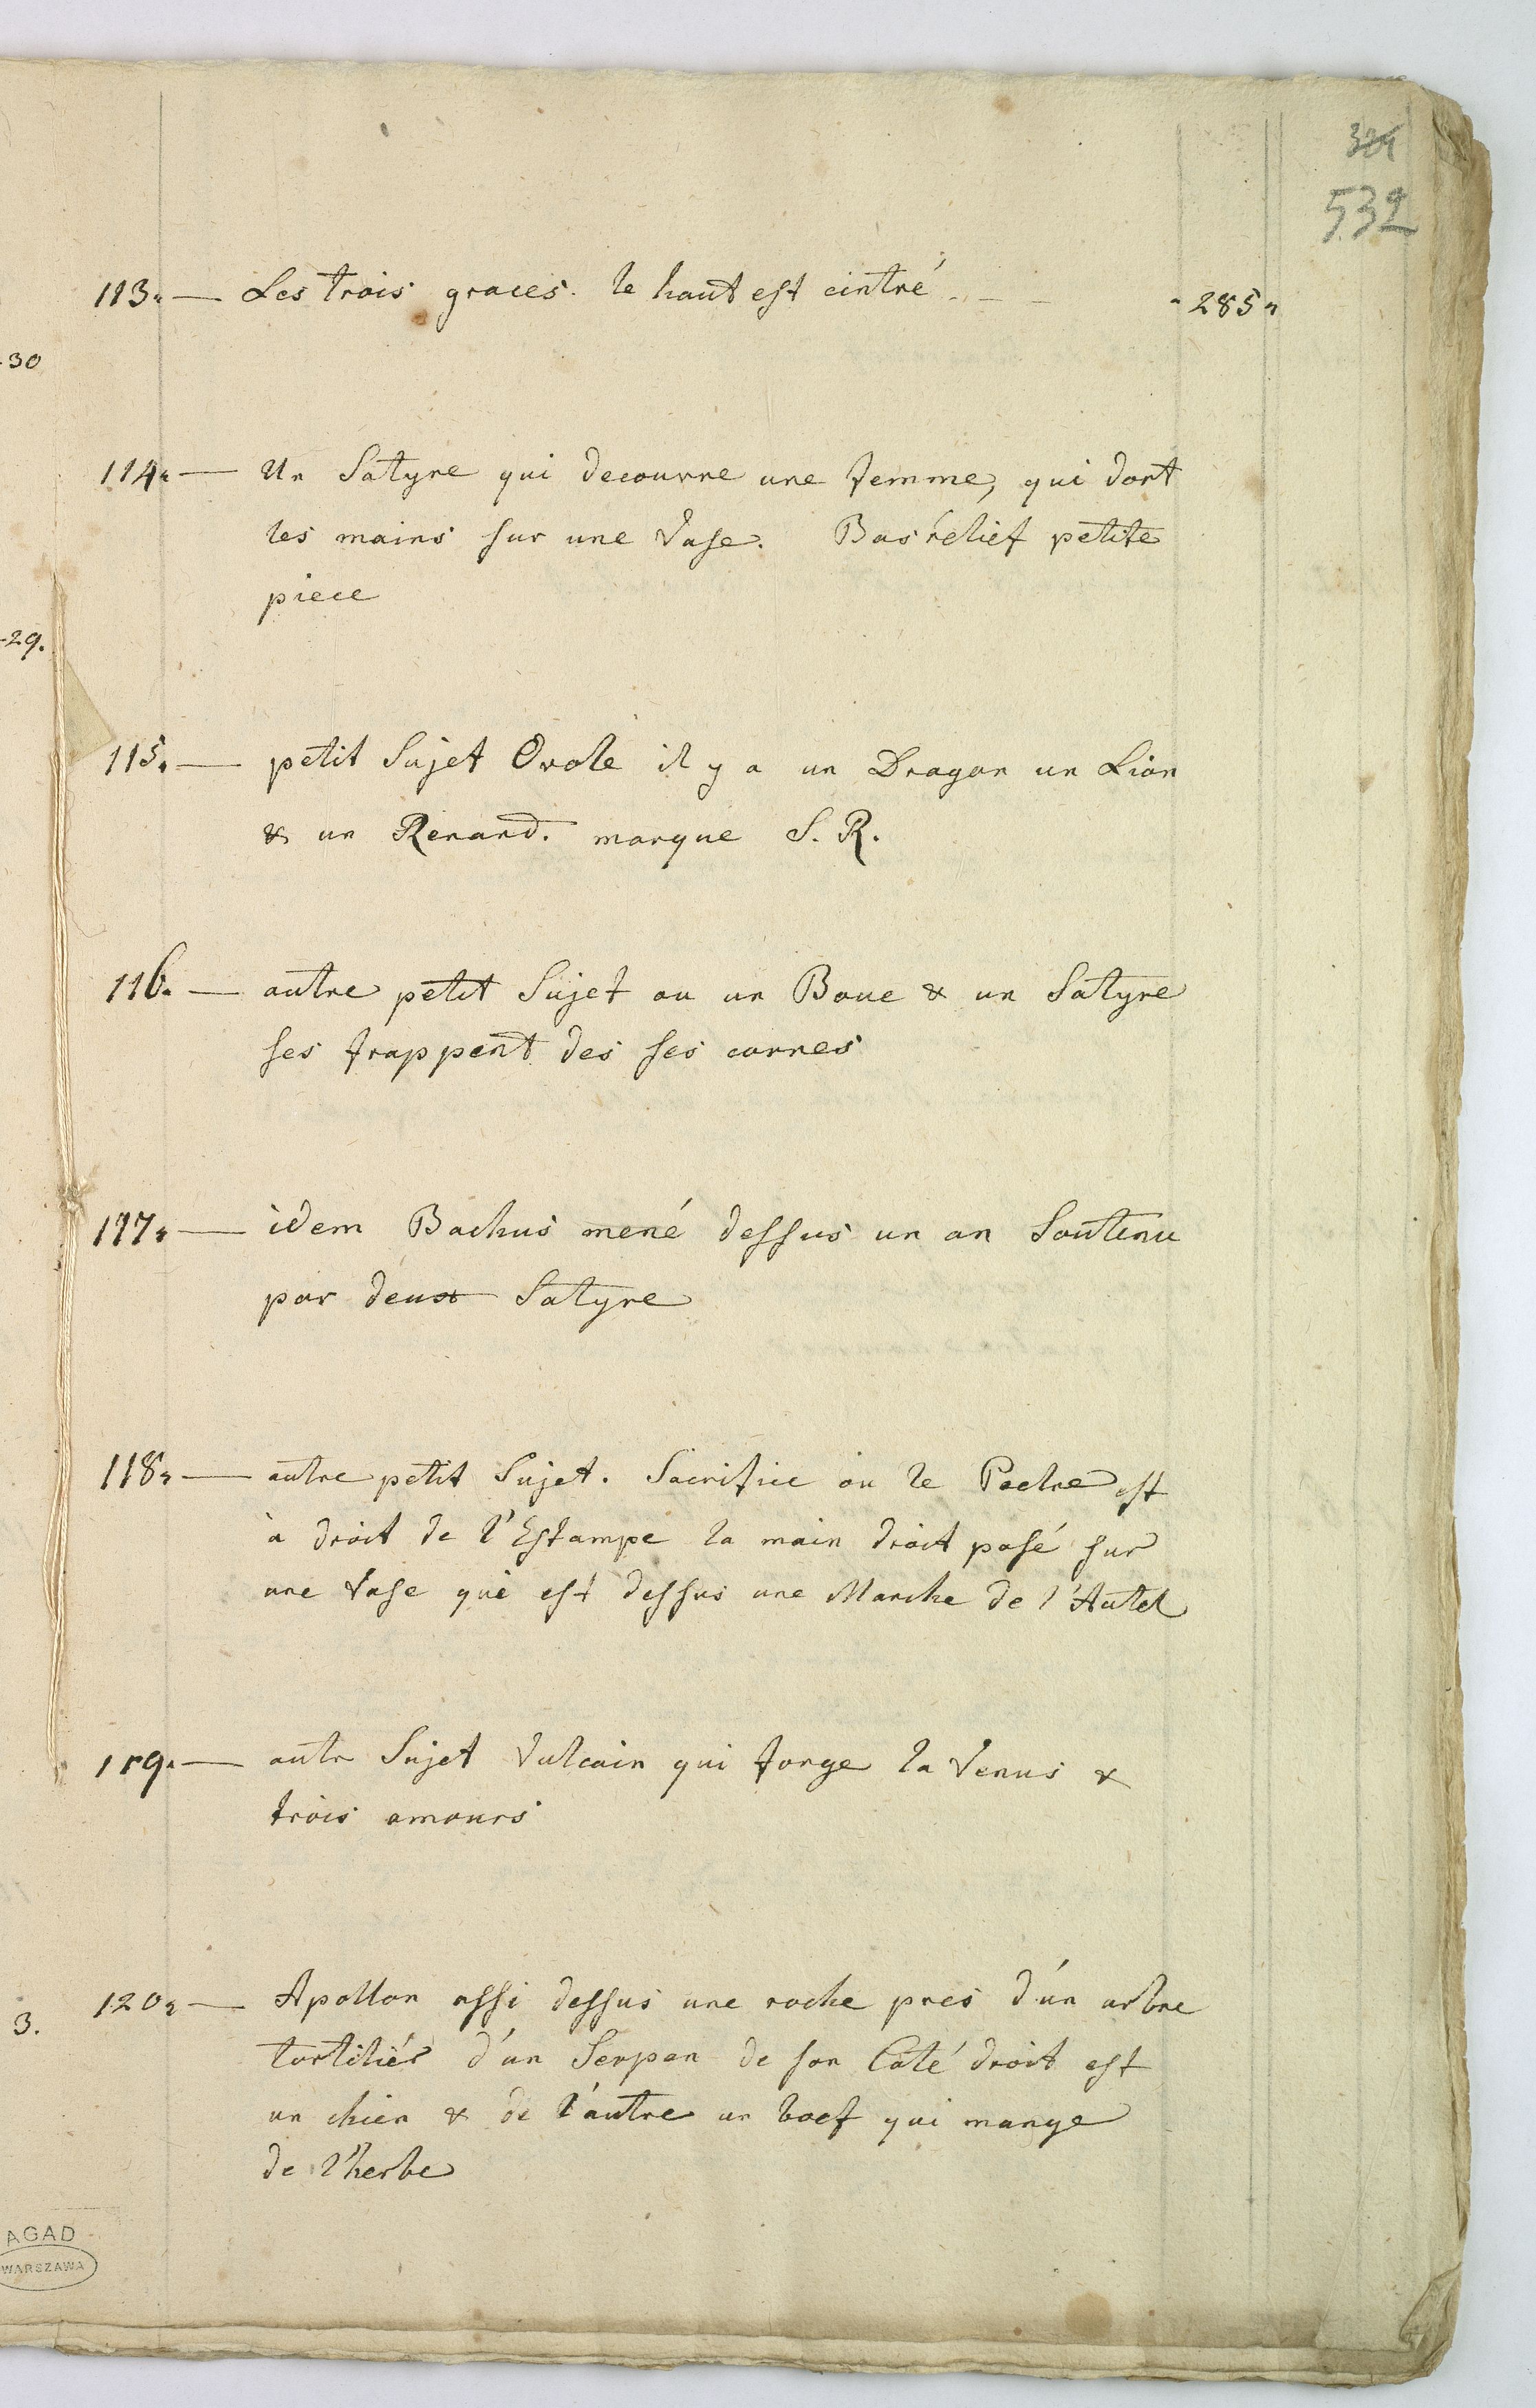 324
532
113. — Les trois graces. le haut est cintré - - - 285 "
-30
114. — Un Satyre qui decouvre une femme, qui dort
les mains sur une Vase. Bas rélief petite
piece
-29.
115. — petit Sujet Ovale il y a un Dragon un Lion
& un Renard. marque S. R.
116. — autre petit Sujet ou un Bouc & un Satyre
ses frappent des ses cornes
117. — idem Bachus mené dessus un an Soutenu
par deux Satyre
118. — autre petit Sujet. Sacrifice ou le Pretre est
à droit de l'Estampe la main droit posé sur
une Vase qui est dessus une Marche de l'Autel
119. — autr Sujet Vulcain qui forge la Venus &
trois amours
120. — Apollon assi dessus une roche pres d'un arbre
3.
tortiliér d'un Serpan de son Coté droit est
un chien & de l'autre un boef qui mange
de l'herbe
AGAD
WARSZAWA